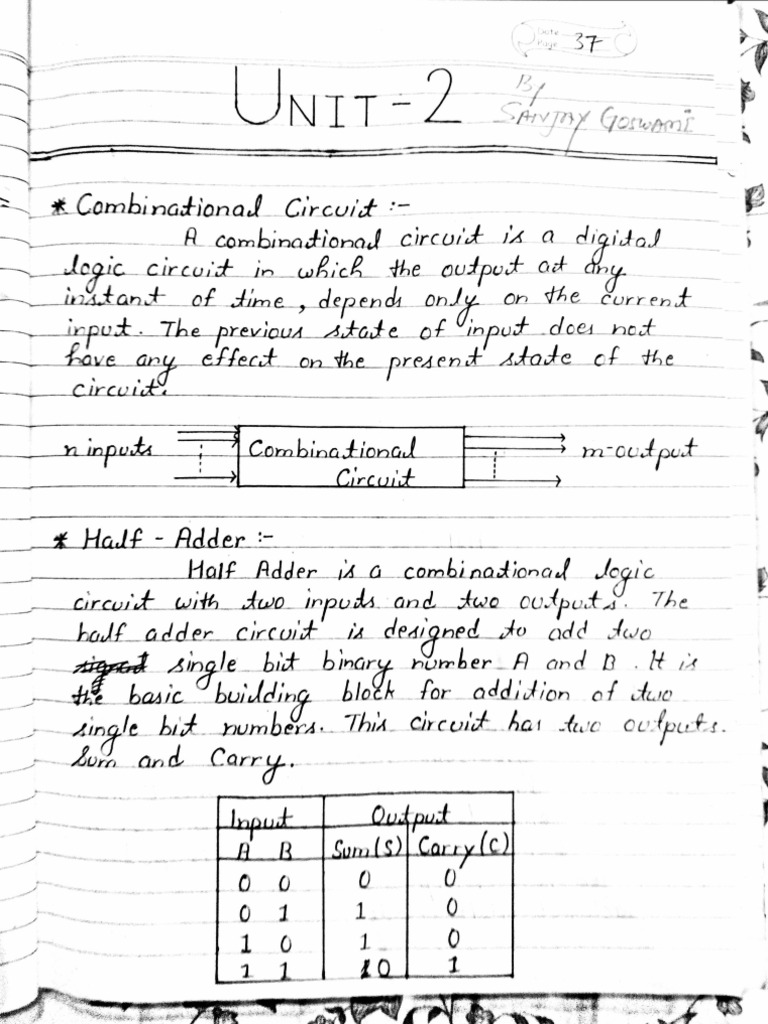 Date
Page 37
UNIT-2
By
SANJAY GOSWAMI
* Combinational Circuit :-
A combinational circuit is a digital
logic circuit in which the output at any
instant of time, depends only on the current
input. The previous state of input does not
have any effect on the present state of the
circuit.
n inputs Combinational m-output
Circuit
* Half - Adder :-
Half Adder is a combinational logic
circuit with two inputs and two outputs. The
half adder circuit is designed to add two
single bit binary number A and B. It is
the basic building block for addition of two
single bit numbers. This circuit has two outputs.
Sum and Carry.
Input Output
A B Sum(S) Carry(C)
0 0 0 0
0 1 1 0
1 0 1 0
1 1 0 1